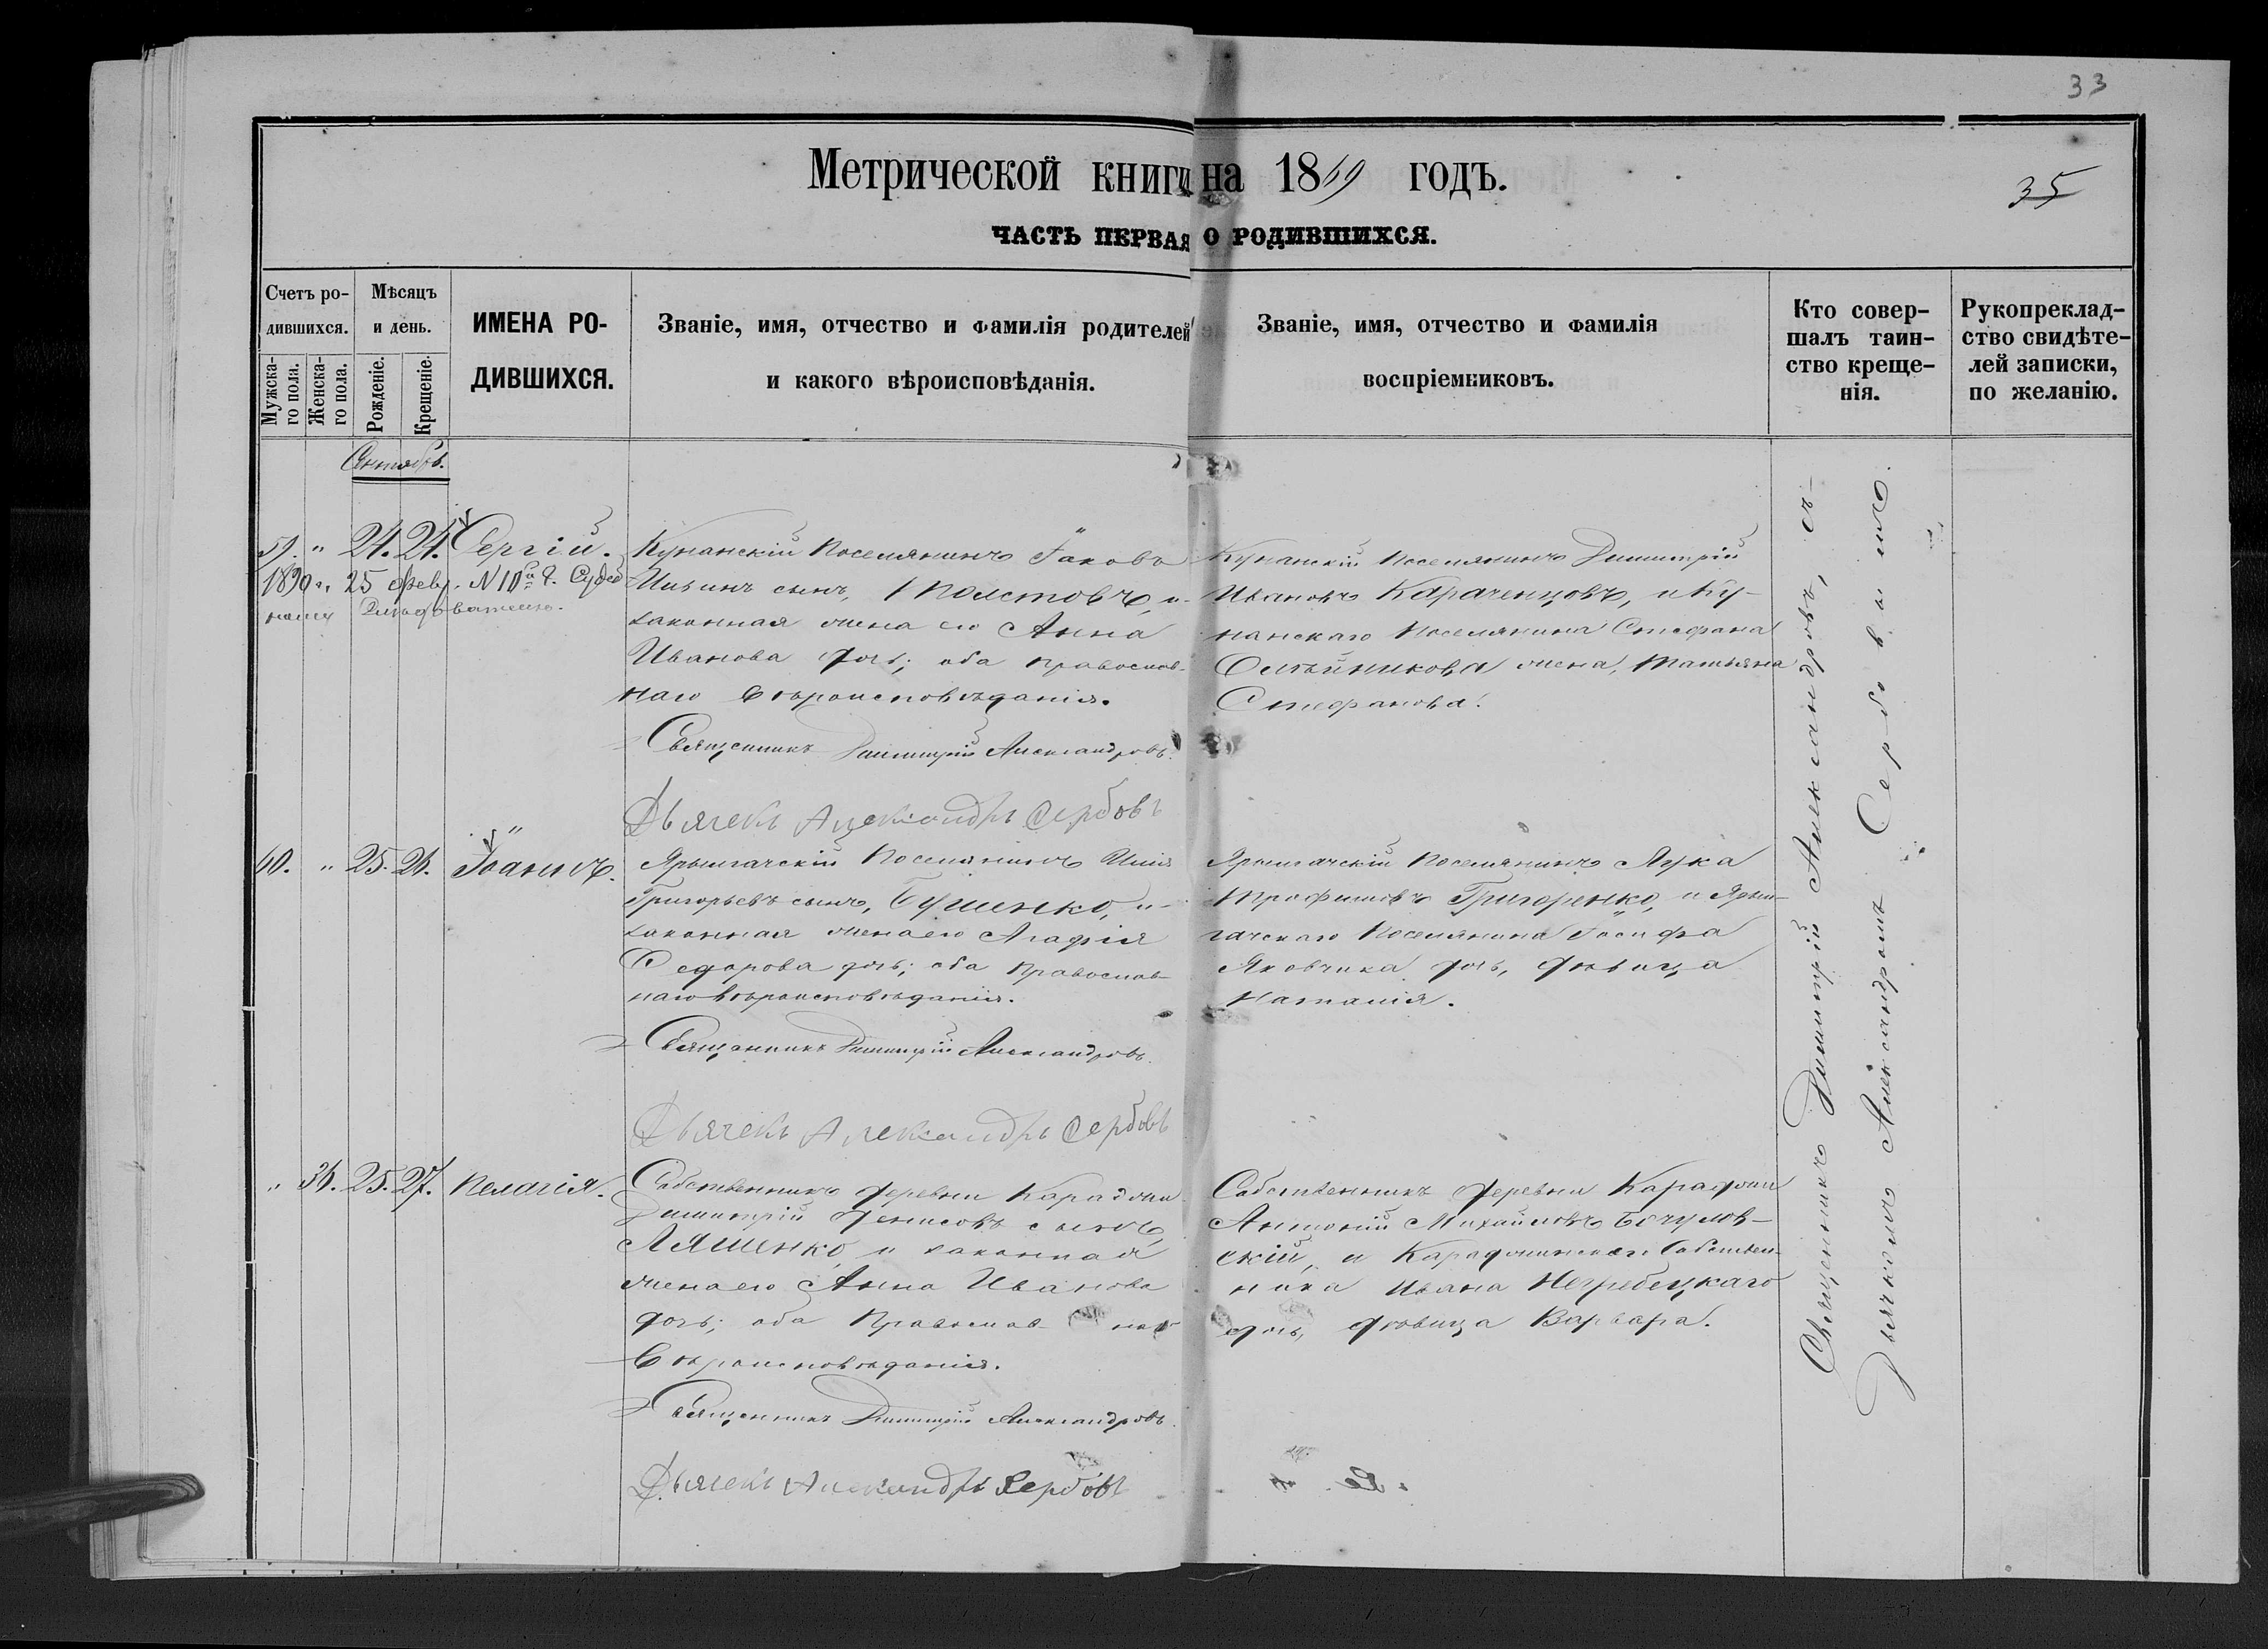 33
Метрической книги на 1869 годъ.
35
ЧАСТЬ ПЕРВАЯ О РОДИВШИХСЯ.
Счетъ ро-
дившихся.
Мужска-
го пола.
Женска-
го пола.
Мѣсяцъ
и день.
Рожденіе.
Крещеніе.
ИМЕНА РО-
ДИВШИХСЯ.
Званіе, имя, отчество и фамилія родителей
и какого вѣроисповѣданія.
Званіе, имя, отчество и фамилія
воспріемниковъ.
Кто совер-
шалъ таин-
ство креще-
нія.
Рукоприклад-
ство свидѣте-
лей записки,
по желанію.
Сентябрь.
59. " 24. 24. Сергій.
1890 г. 25 февр. №
Кунанскій Поселянинъ Іаковъ
Ильинъ сынъ, Толстовъ, и
законная жена его Анна
Иванова дочь; оба православ-
наго вѣроисповѣданія.
Священникъ Димитрій Александровъ.
Дьячекъ Александръ Сербовъ
Кунанскій Поселянинъ Димитрій
Ивановъ Караченцовъ, и Ку-
нанскаго Поселянина Стефана
Олѣйникова жена, Татьяна
Стефанова.
60. " 25. 26. Іоаннъ.
Ярылгачскій Поселянинъ Илія
Григорьевъ сынъ, Бушенко, и
законная жена его Агафія
Ѳедорова дочь; оба Православ-
наго вѣроисповѣданія.
Священникъ Димитрій Александровъ.
Дьячекъ Александръ Сербовъ
Ярылгачскій Поселянинъ Лука
Трофимовъ Григоренко, и Ярыл-
гачскаго Поселянина Іосифа
Яковчика дочь, дѣвица
Наталія.
" 36. 25. 27. Пелагія.
Собственникъ деревни
Димитрій Денисовъ сынъ,
Ляшенко, и законная
жена его Анна Иванова
дочь; оба Православнаго
вѣроисповѣданія.
Священникъ Димитрій Александровъ.
Дьячекъ Александръ Сербовъ
Собственникъ деревни
Антоній Михайловъ Бочулов-
скій, и Собствен-
ника Ивана Негребецкаго
дочь, дѣвица Варвара.
Священникъ Димитрій Александровъ, съ-
Дьячкомъ Александромъ Сербовымъ.